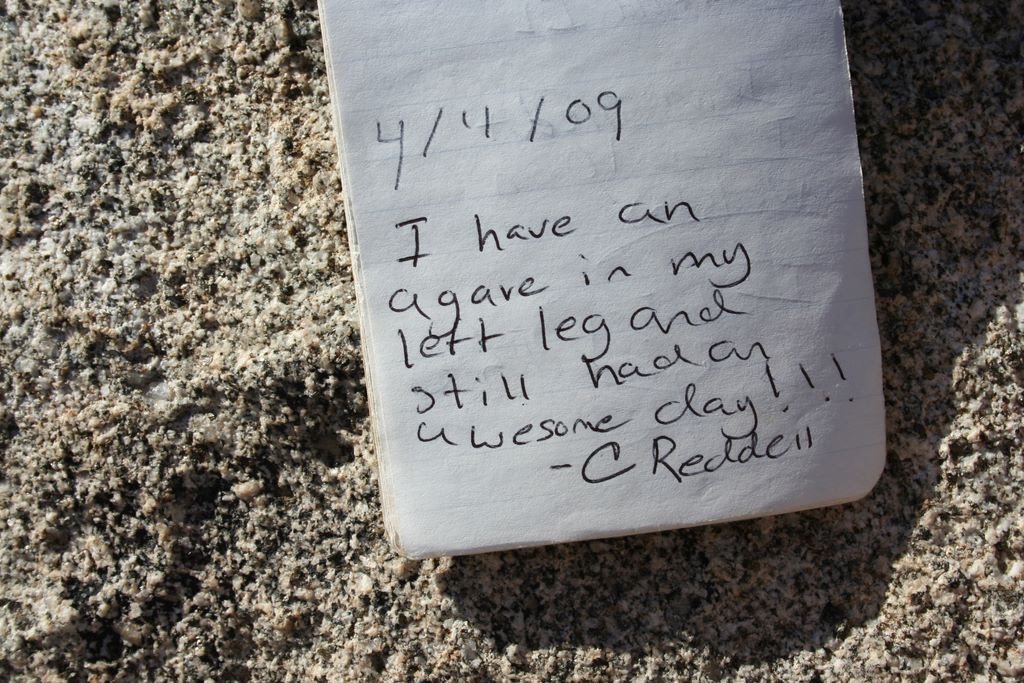 4/4/09
I have an
agave in my
left leg and
still had an
awesome day!!!
- C Reddell